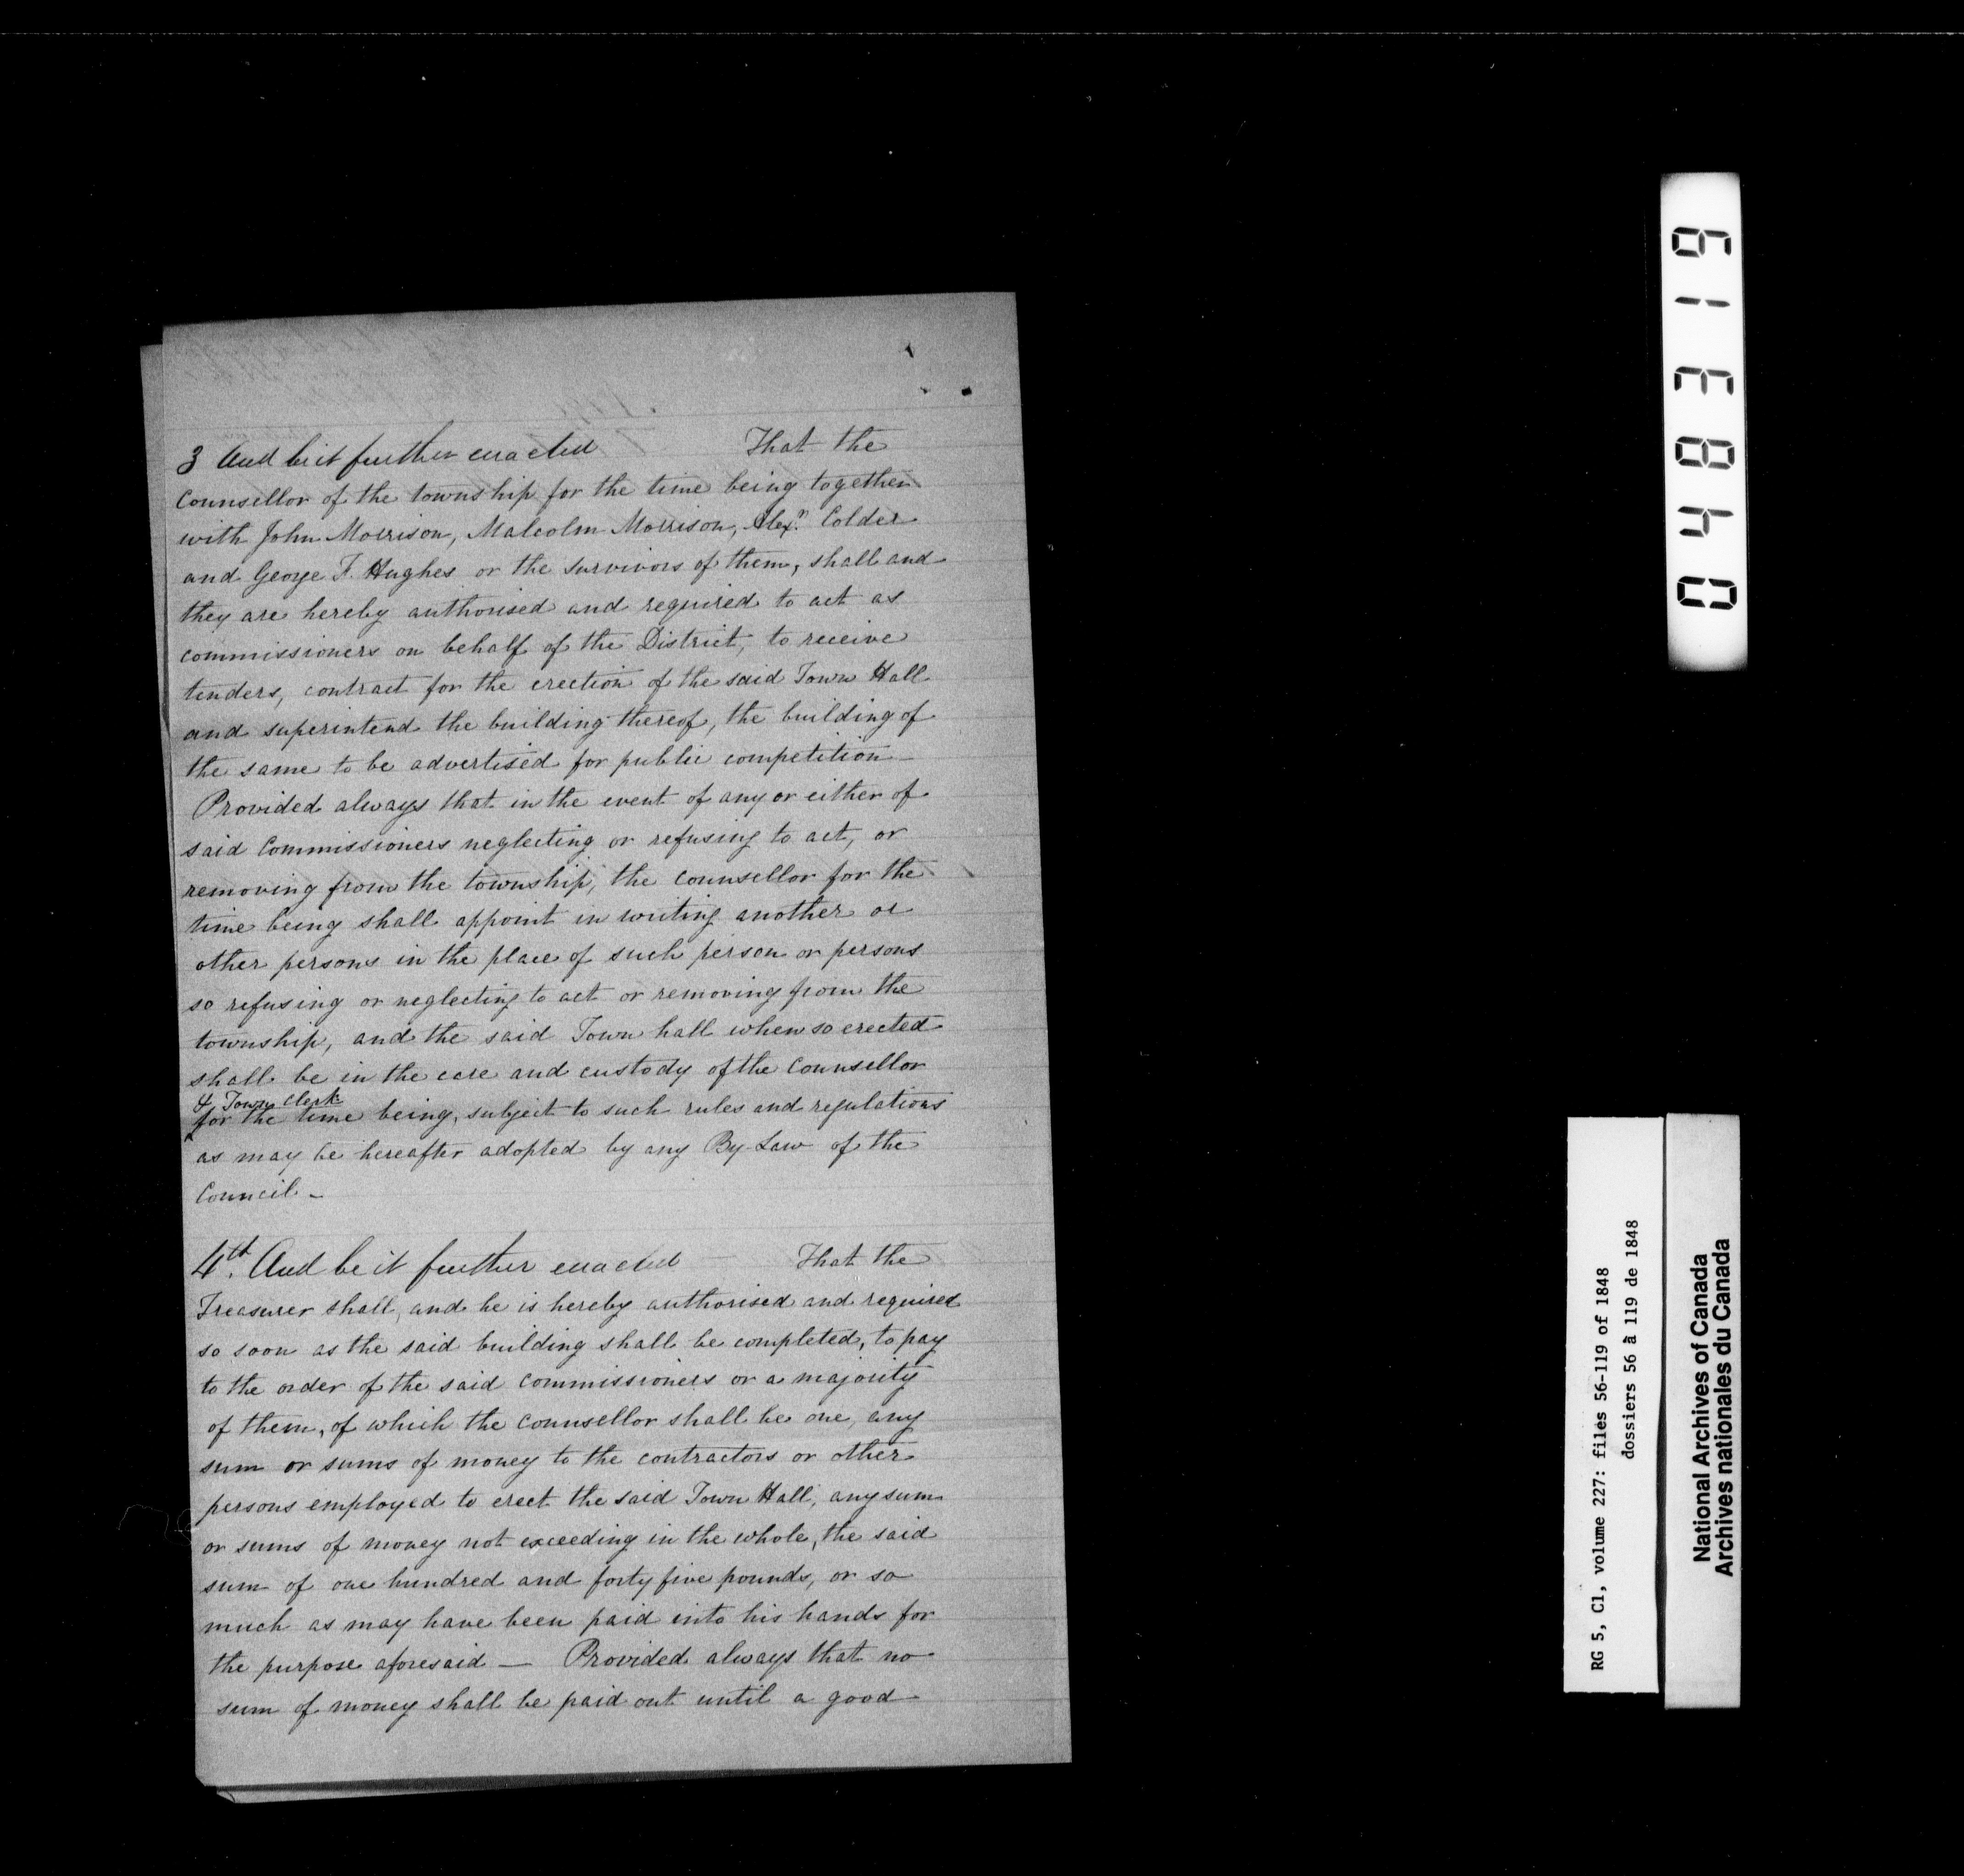 3 And be it further enacted That the
Counsellor of the township for the time being together
with John Morrison, Malcolm Morrison, Alexr. Colder
and George F. Hughes or the survivors of them, shall and
they are hereby authorised and required to act as
commissioners on behalf of the District, to receive
tenders, contract for the erection of the said Town Hall
and superintend the building thereof, the building of
the same to be advertised for public competition –
Provided always that in the event of any or either of
said Commissioners neglecting or refusing to act, or
removing from the township, the counsellor for the
time being shall appoint in writing another or
other persons in the place of such person or persons
so refusing or neglecting to act or removing from the
township, and the said Town hall when so erected
shall be in the care and custody of the Counsellor
& Town Clerk
for the time being, subject to such rules and regulations
as may be hereafter adopted by any By-Law of the
Council –
4th. And be it further enacted — That the
Treasurer shall, and he is hereby authorised and required
so soon as the said building shall be completed, to pay
to the order of the said commissioners or a majority
of them, of which the Counsellor shall be one, any
sum or sums of money to the contractors or other
persons employed to erect the said Town Hall, any sum
or sums of money not exceeding in the whole, the said
sum of one hundred and forty five pounds, or so
much as may have been paid into his hands for
the purpose aforesaid — Provided always that no
sum of money shall be paid out until a good
048319
RG 5, C1, volume 227: files 56-119 of 1848
dossiers 56 à 119 de 1848
National Archives of Canada
Archives nationales du Canada